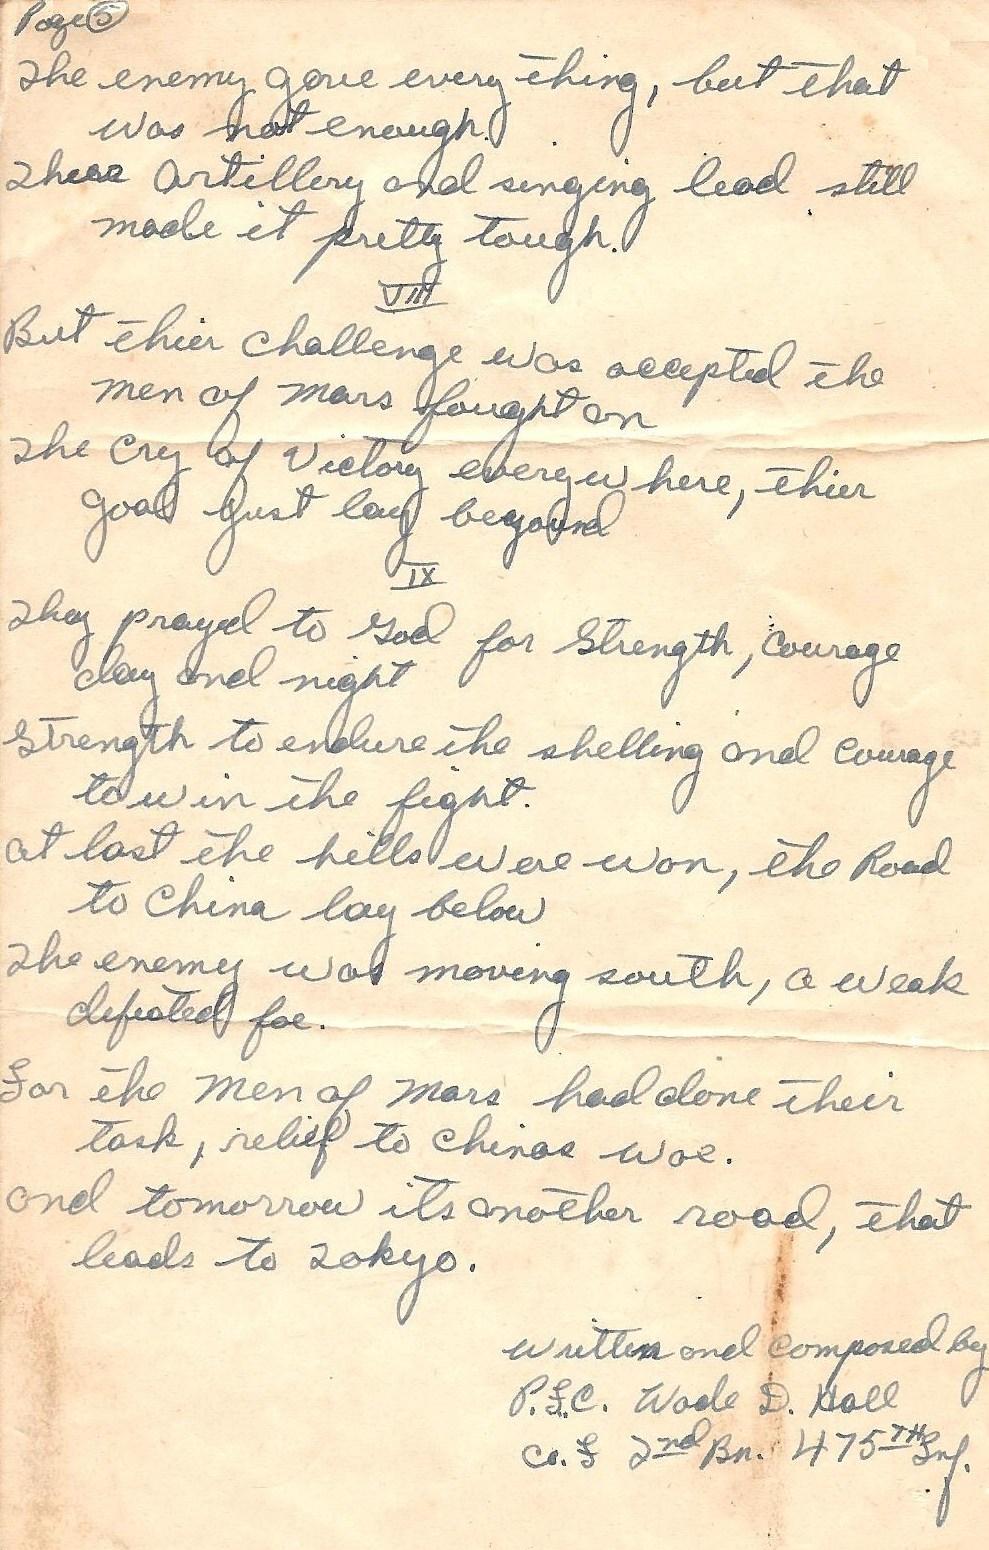 Page 5
The enemy gave every thing, but that
was not enough.
Artillery and singing lead still
made it pretty tough.
VIII
But thier challenge was accepted the
men of Mars fought on
The Cry of Victory everywhere, thier
goal just lay beyound
IX
They prayed to God for Strength, Courage
day and night
Strength to endure the shelling and Courage
to win the fight.
at last the hills were won, the Road
to China lay below
The enemy was moving south, a weak
defeated foe.
For the Men of Mars had done their
task, relief to Chinas woe.
and tomorrow its another road, that
leads to Tokyo.
written and composed by
P.F.C. Wade D. Hall
Co. F 2nd Bn. 475TH Inf.